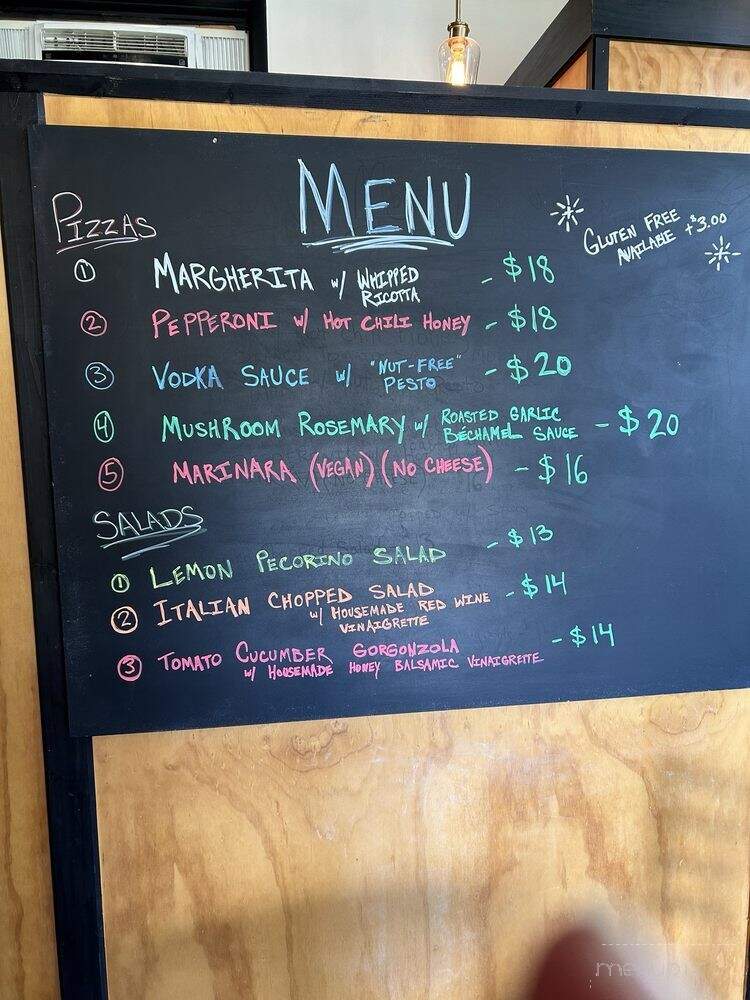 MENU
PIZZAS
GLUTEN FREE
AVAILABLE +$3.00
1 MARGHERITA w/ WHIPPED RICOTTA - $18
2 PEPPERONI w/ HOT CHILI HONEY - $18
3 VODKA SAUCE w/ "NUT-FREE" PESTO - $20
4 MUSHROOM ROSEMARY w/ ROASTED GARLIC BÉCHAMEL SAUCE - $20
5 MARINARA (VEGAN) (NO CHEESE) - $16
SALADS
1 LEMON PECORINO SALAD - $13
2 ITALIAN CHOPPED SALAD - $14
w/ HOUSEMADE RED WINE
VINAIGRETTE
3 TOMATO CUCUMBER GORGONZOLA - $14
w/ HOUSEMADE HONEY BALSAMIC VINAIGRETTE